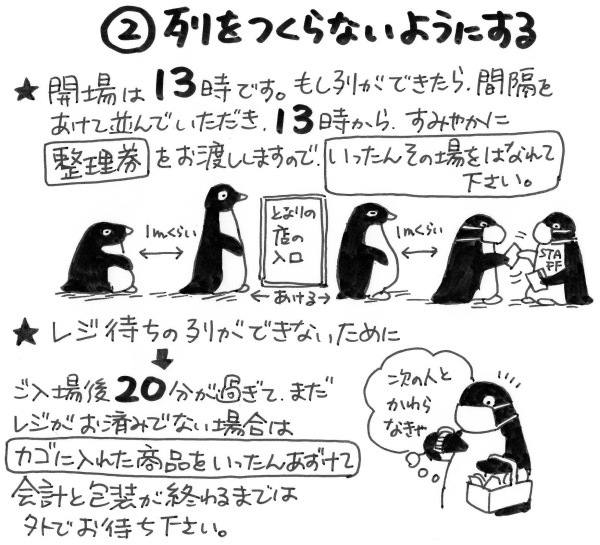 ② 列をつくらないようにする
★ 開場は13時です。もし列ができたら、間隔を
あけて並んでいただき、13時から、すみやかに
整理券をお渡ししますので、いったんその場をはなれて
下さい。
1mくらい
となりの
店の
入口
あける
1mくらい
STA
FF
★ レジ待ちの列ができないために
ご入場後20分が過ぎて、まだ
レジがお済みでない場合は
カゴに入れた商品をいったんあずけて
会計と包装が終わるまでは
外でお待ち下さい。
次の人と
かわら
なきゃ